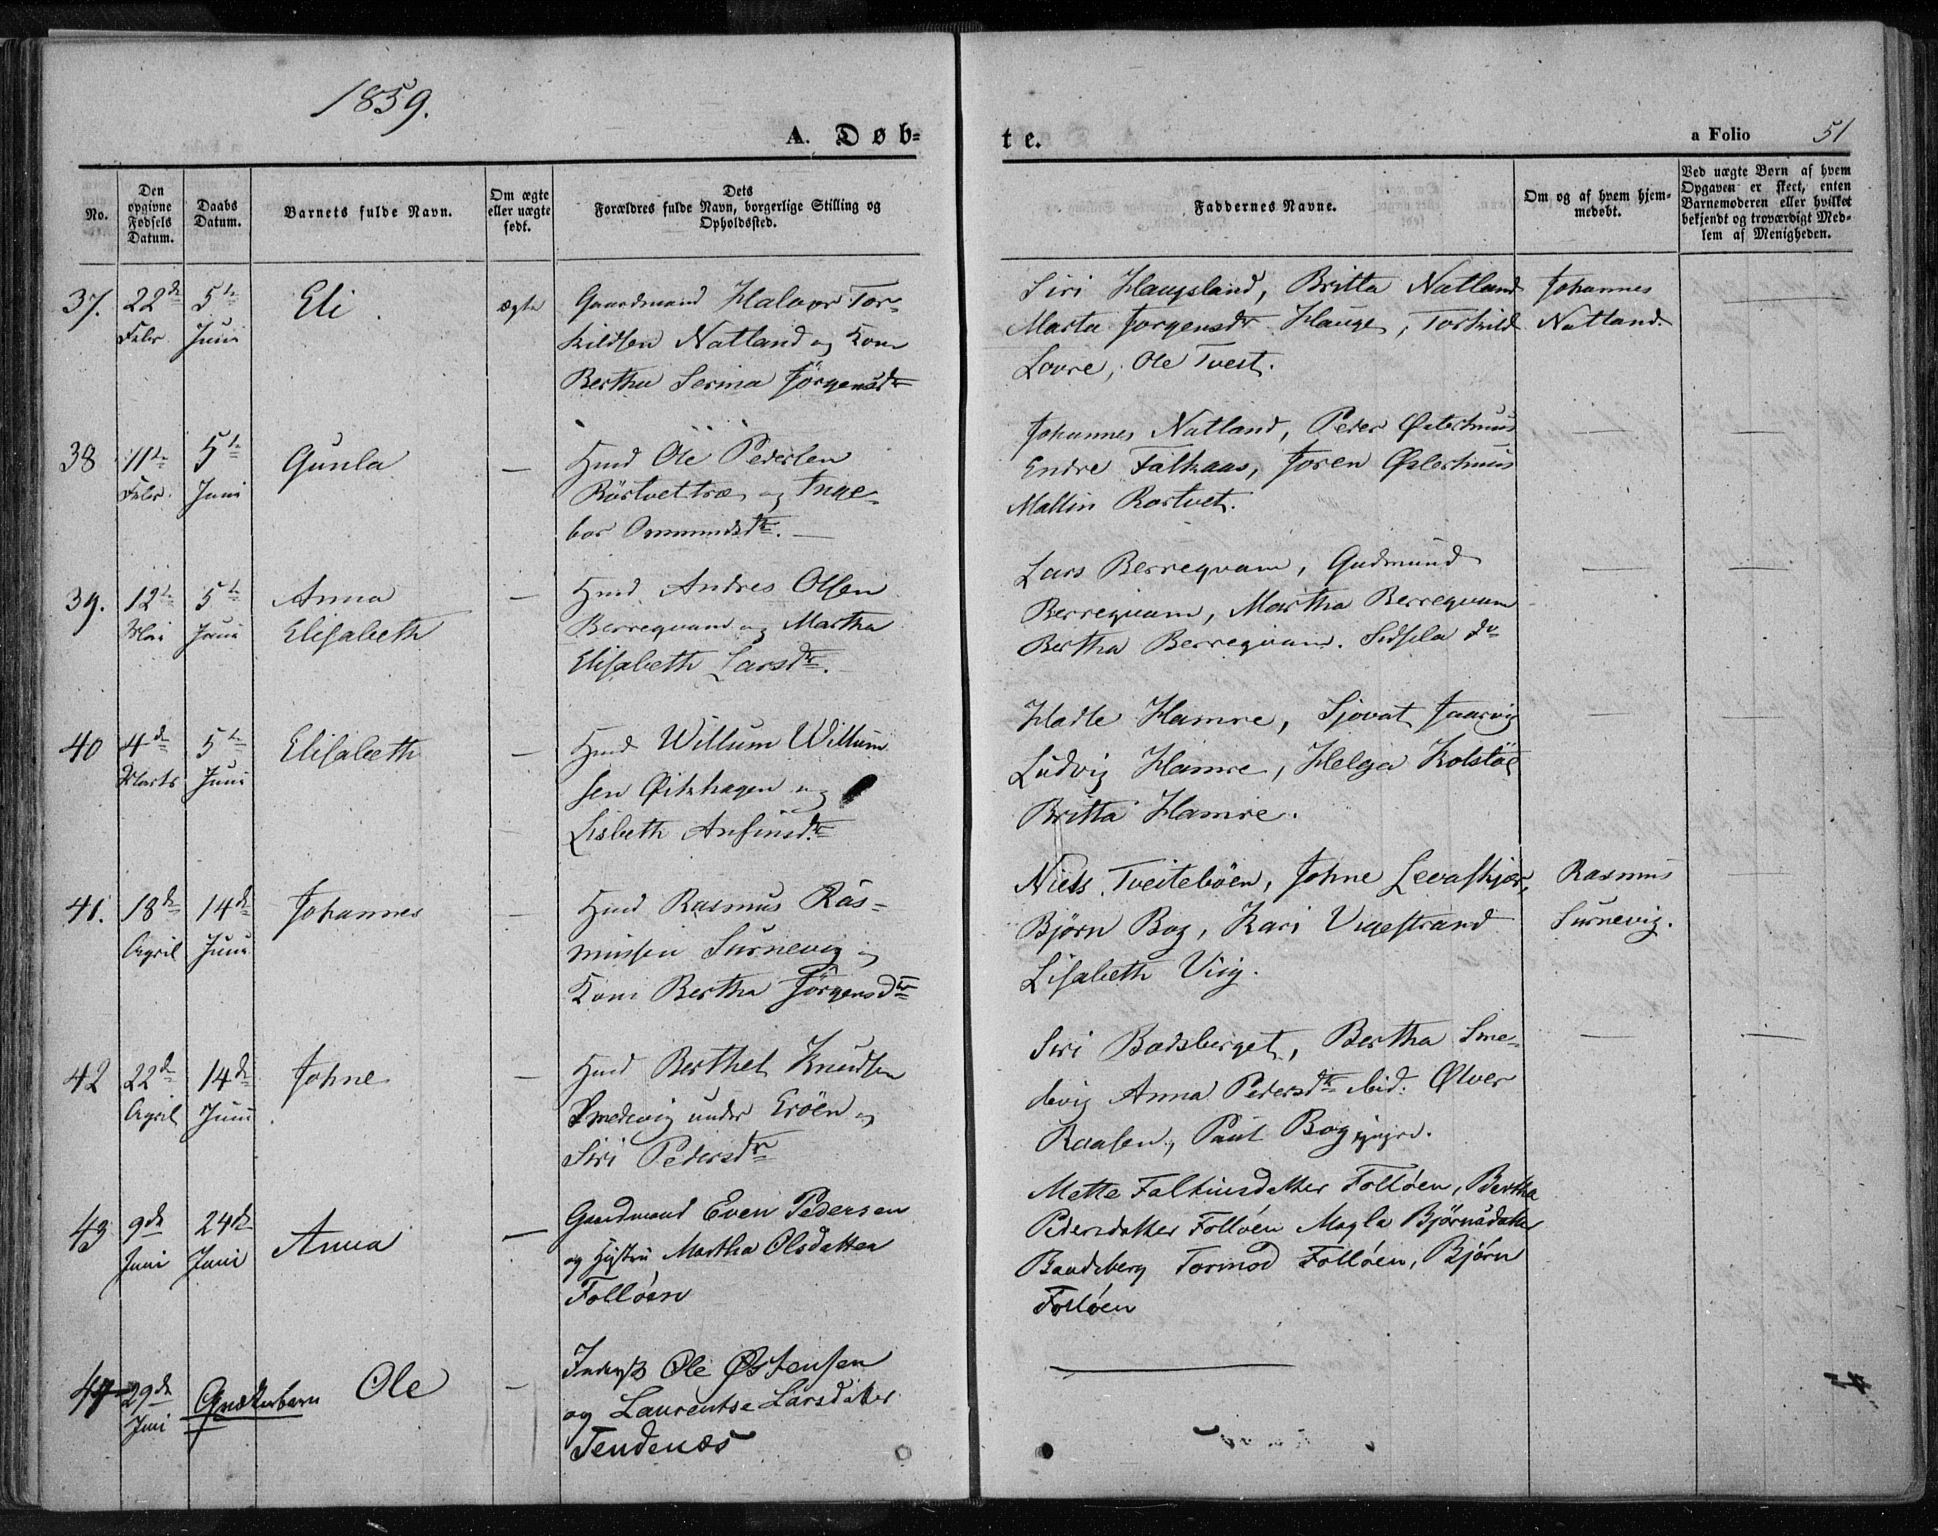 1859.
A. Døb-
te.
a Folio 51
No.
Den opgivne Fødsels Datum.
Daabs Datum.
Barnets fulde Navn.
Om ægte eller uægte født.
Dets Forældres fulde Navn, borgerlige Stilling og Opholdssted.
Faddernes Navne.
Om og af hvem hjemmedøbt.
Ved uægte Børn af hvem Opgaven er skeet, enten Barnemoderen eller hvilket bekjendt og troværdigt Medlem af Menigheden.
37. 22de Febr 5te Juni Eli ægte
Gaardmand Halvor Tor-
kildsen Natland og Kone
Bertha Serina Jörgensdtr
Siri Haugsland, Britta Natland
Marta Jorgensdtr Hauge, Torkild
Lovre, Ole Tvest.
Johannes
Natland.
38 11te Febr. 5te Juni Gunla —
Husd Ole Pedersen
Börtvettræ og Inge-
bor Ommundsdtr. —
Johannes Natland, Peder Østerhuus
Endre Falkaas, Joren Østerhuus
Mallin Rortvet.
39. 12te Mai 5te Juni Anna
Elisabeth —
Husd Andres Olsen
Berrequam og Martha
Elisabeth Larsdtr.
Lars Berrequam, Gudmund
Berrequam, Martha Berrequam
Bertha Berrequam. Sidsela do
40 4de Marts 5te Juni Elisabeth —
Husd Willum Willum
sen Øikhagen og
Lisbeth Ansinsdtr
Hadle Hamre, Sjovat Jaarvig
Ludvig Hamre, Helga Kolstöe
Britta Hamre.
41. 18de April 14de Juni Johannes —
Husd Rasmus Ras-
mussen Surnevig og
Kone Bertha Jörgensdtr
Niels Tveitebøen, Johne Levaskjær,
Bjørn Bog, Kari Vigestrand
Lisabeth Viig.
Rasmus
Surnevig.
42 22de April 14de Juni Johne —
Husd Berthel Knudsen
Smedvig under Eröen og
Siri Pedersdtr
Siri Badsberget, Bertha Sme-
dvig Anna Pedersdtr ibid. Ølver
Raasen, Paul Bog yngre.
43 9de Juni 24de Juni Anna —
Gaardmand Even Pedersen
og Hustru Martha Olsdatter
Folløen
Mette Falkinsdatter Folløen, Bertha
Pedersdatter Folløen Magla Bjørnsdatter
Bandsberg Tormod Folløen, Bjørn
Folløen
44 29de Juni Ole —
Inderst Ole Østensen
og Laurentse Larsdatter
Tendenæs